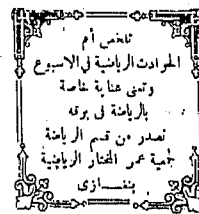 تلخص أهم
الحوادث الرياضية في الاسبوع
وتعنى عناية خاصة
بالرياضة فى برقه
تصدر عن قسم الرياضة
جمعية عمر المختار الرياضية
بنغازى